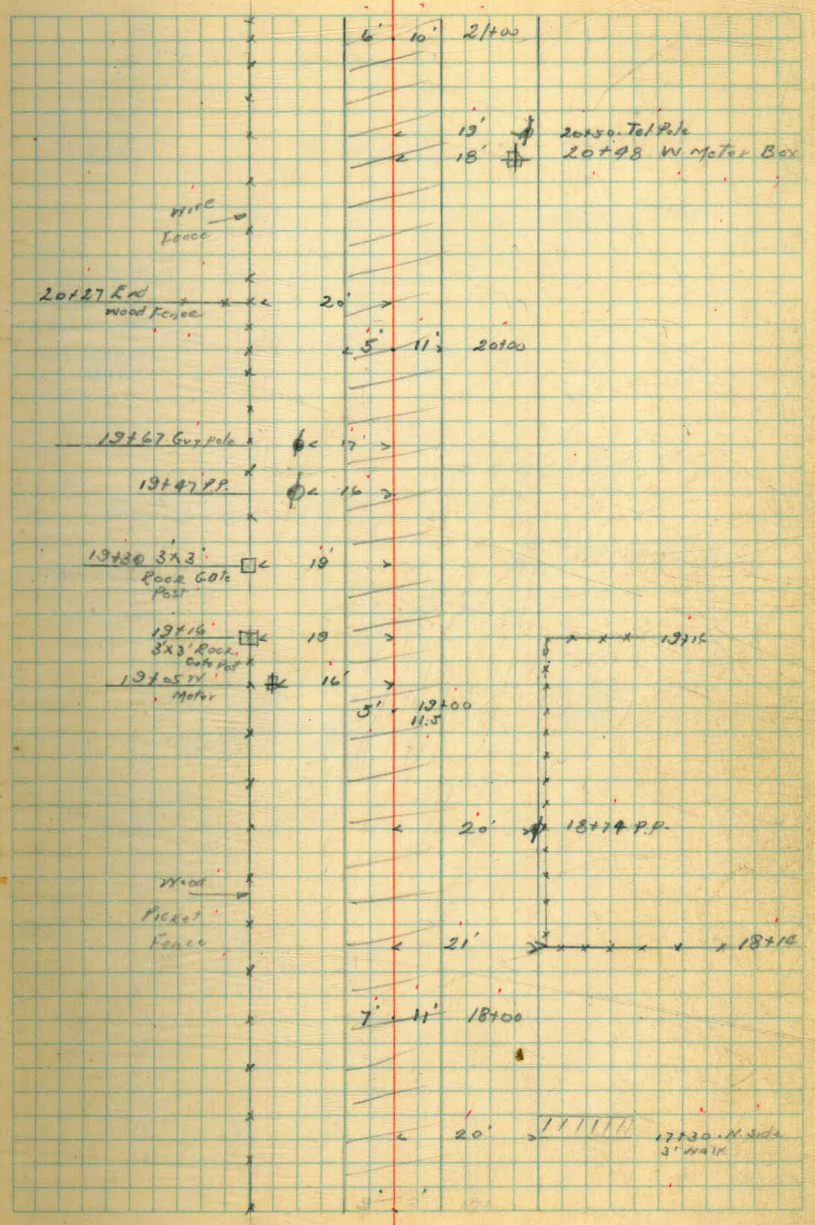 6' 10' 21+00
19' 20+50. Tel Pole
18' 20+48 W Meter Box
Wire
Fence
20+27 End 20'
Wood Fence
5' 11' 20+00
19+67 Guy pole 17'
19+47 P.P. 16'
19+30 3'x3' 19'
Rock Gate
Post
19+16 19
3'x3' Rock
Gate Post
19+16
19+05 W 16'
Meter
5' 19+00
11.5
20' 18+74 P.P.
Wood
Picket
Fence
21' 18+14
7' 11' 18+00
20' 17+30. N. side
3' walk